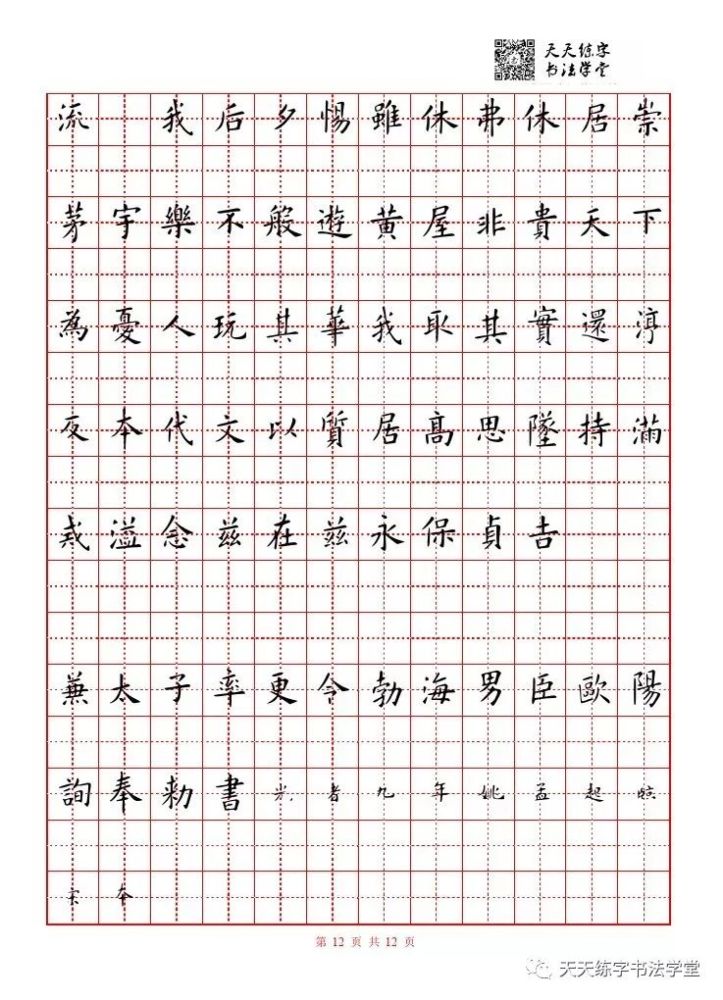 天天练字
书法学堂
流 我后夕惕雖休弗休居崇
茅宇樂不般遊黃屋非貴天下
為憂人玩其華我取其實還淳
反本代文以質居高思墜持滿
戒溢念兹在兹永保貞吉
兼太子率更令勃海男臣歐陽
詢奉勑書光者九年姚孟起
宋本
第 12 页 共 12 页
天天练字书法学堂